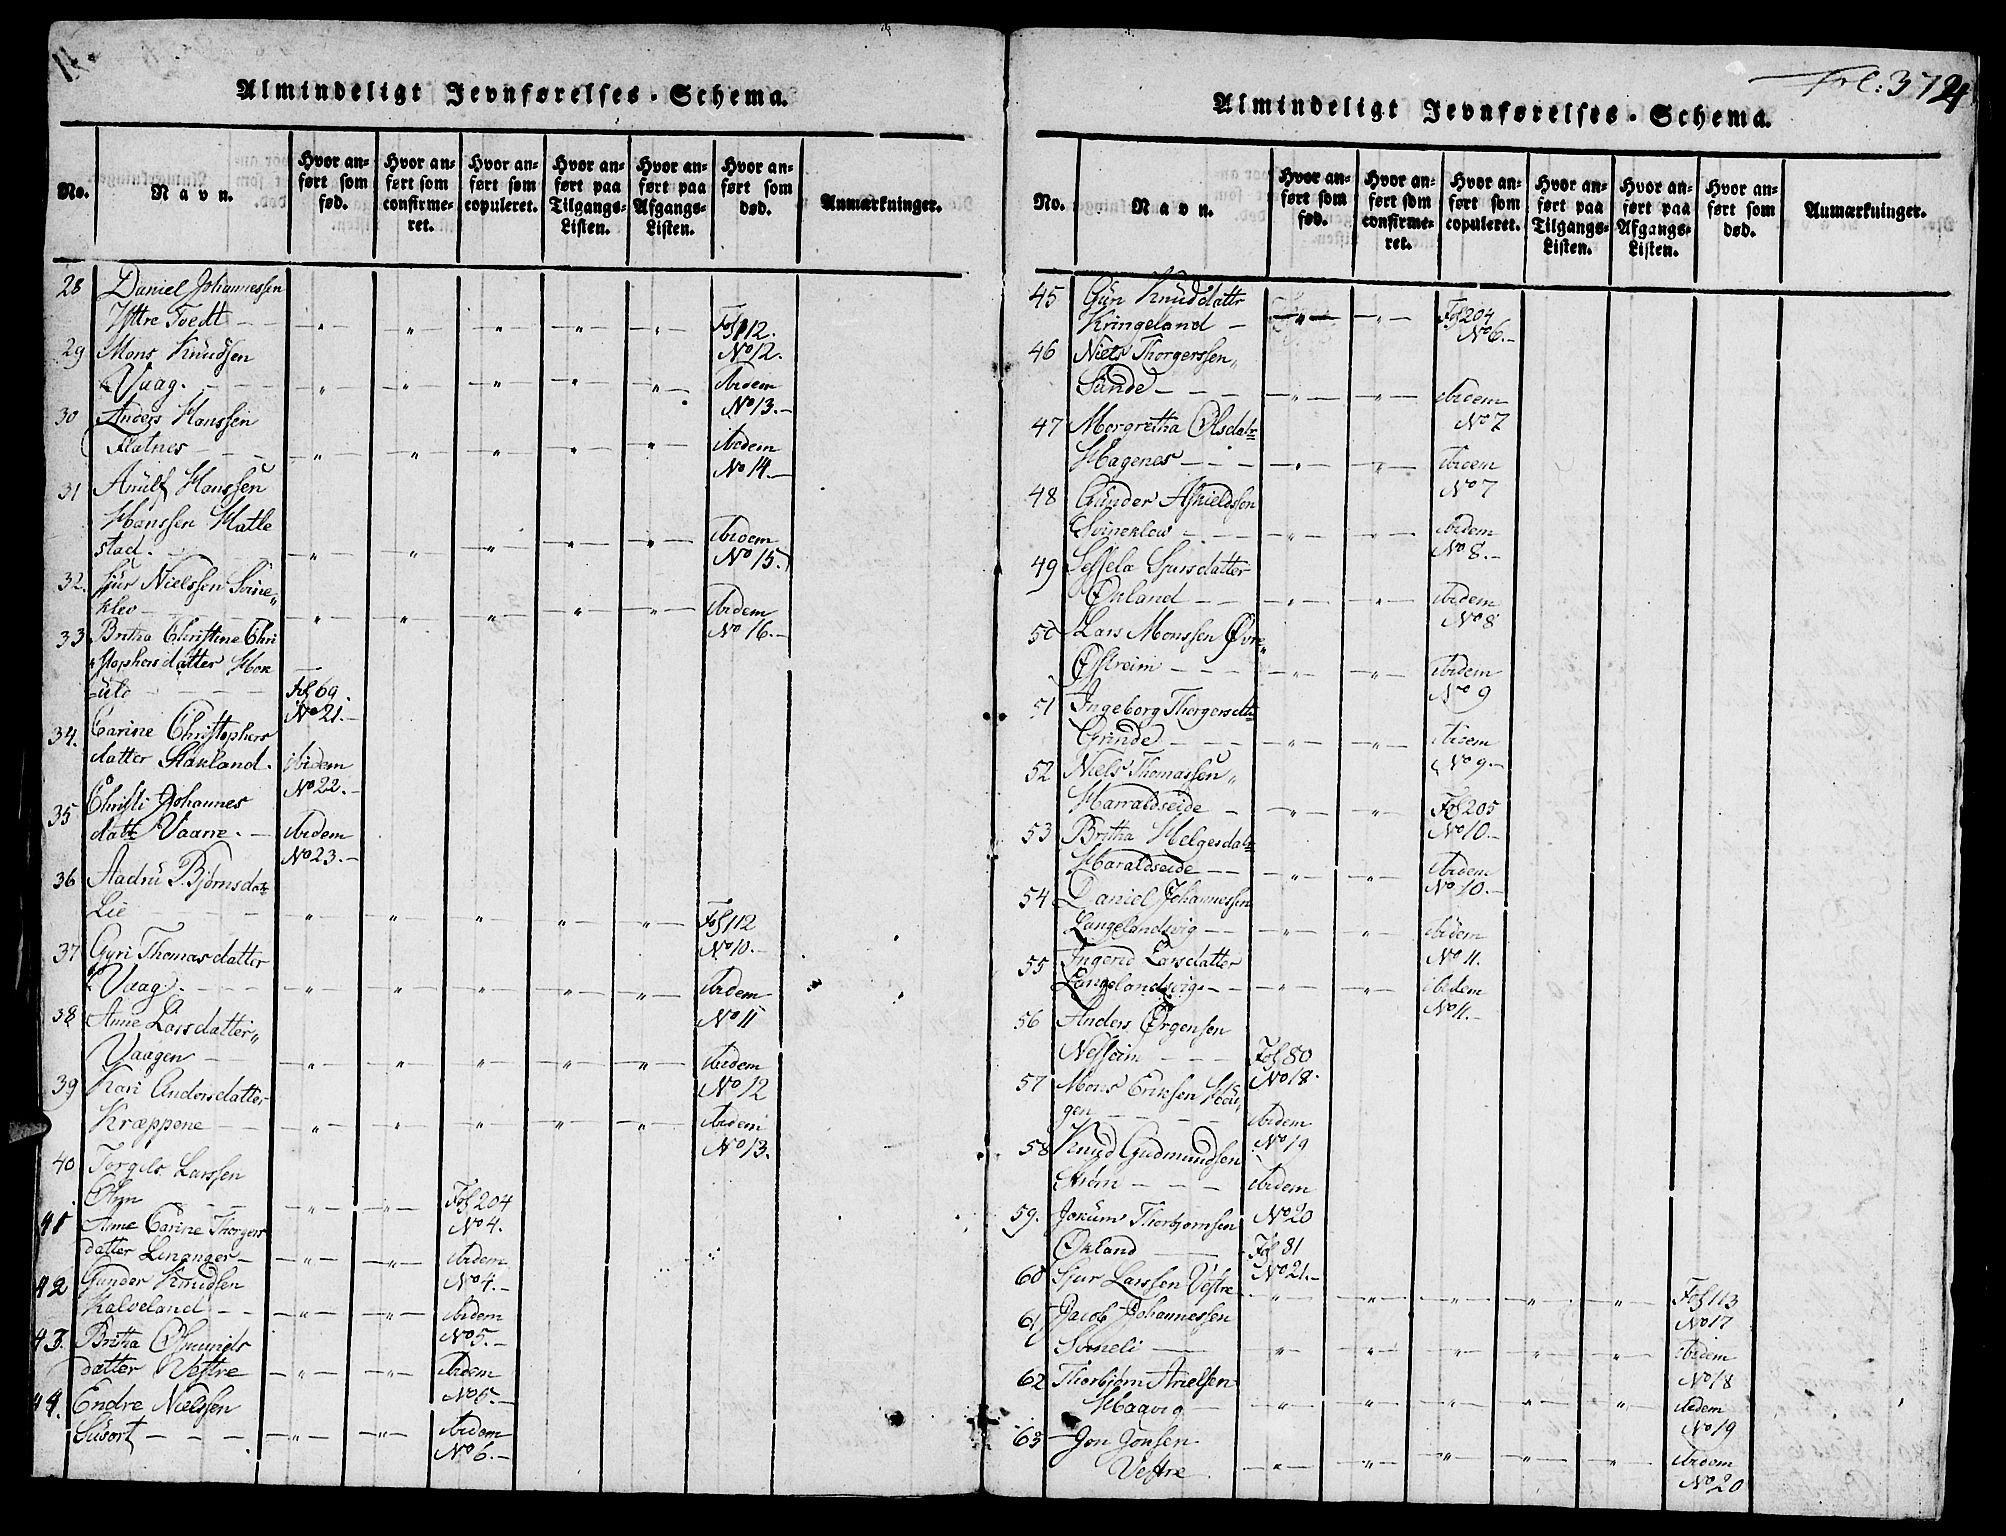 Almindeligt Jevnførelses-Schema.
No. Navn. Hvor anført som fød. Hvor anført som confirmeret. Hvor anført som copuleret. Hvor anført paa Tilgangs-Listen. Hvor anført paa Afgangs-Listen. Hvor anført som død. Anmærkninger.
28 Daniel Johannessen
Yttre Toedt Fol 112.
No 12.
29 Mons Knudsen
Vaag. Ibidem
No 13.
30 Anders Hanssen
Flatnes Ibidem
No 14
31 Anulf Hanssen
Hanssen Hatle
stad. Ibidem
No 15.
32. Sjur Nielssen Svine„
klev Ibidem
No 16.
33 Britha Christine Chri
stophersdatter Hok
uld Fol 69.
No 21.
34. Carine Christophers
datter Stakland. Ibidem
No 22.
35 Christi Johannes
datt Vaarre. Ibidem
No 23.
36 Aadru P. Bjørnsdatr
Lie Fol 112
No 10.
37 Gyri Thomasdatter
Vaag. Ibidem
No 11
38 Anne Larsdatter„
Vaagen Ibidem
No 12
39 Kari Andersdatter
Kræppene Ibidem
No 13.
40 Torgils Larssen
Ølyn Fol 204
No 4.
41 Anne Carine Thorgers
datter Linanger Ibidem
No 4.
42 Gunder Knudsen
Kalveland Ibidem
No 5.
43. Britha Osmunds
datter Vestre Ibidem
No 5.
44. Endre Nielssen
Susort Ibidem
No 6.
Fol: 372
4
Almindeligt Jevnførelses-Schema.
No. Navn. Hvor anført som fød. Hvor anført som confirmeret. Hvor anført som copuleret. Hvor anført paa Tilgangs-Listen. Hvor anført paa Afgangs-Listen. Hvor anført som død. Anmærkninger.
45 Guri Knudsdattr
Kringeland Fol 204
No 6.
46 Niels Thorgerssen„
Sunde Ibidem
No 7
47 Morgretha Olsdatr
Hagenes Ibidem
No 7
48 Gunder Askieldssen
Svineklev Ibidem
No 8.
49 Sessela Sjursdatter
Økland Ibidem
No 8
50 Lars Monssen Øvre„
Østreim Ibidem
No 9
51 Ingeborg Thorgersdtr
Grinde Ibidem
No 9
52 Niels Thomassen„
Harraldseide Fol 205
No 10.
53 Britha Helgesdatr
Haraldseide Ibidem
No 10.
54 Daniel Johannessen
Langelandsvig Ibidem
No 11.
55 Ingerid Larsdatter
Langelandsvig Ibidem
No 11.
56 Anders Ørgensen
Nesseim Fol 80
No 18.
57 Mons Eriksen Hau„
gen Ibidem
No 19
58 Knud Gudmundsen
Strøm Ibidem
No 20
59. Jokum Thorbjornsen
Økland Fol 81
No 21.
60 Sjur Larssen Vestre Fol 113
No 17
61 Jacob Johannessen
Ibidem
No 18
62 Thorbjørn Arielsen
Haavig Ibidem
No 19
63 Jon Jonsen
Vestre Ibidem
No 20